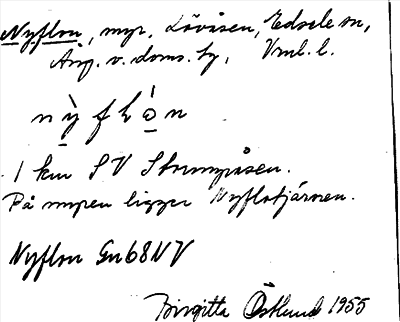 Nyflon, myr, Lövåsen, Edsele sn,
Ång. v. doms. by, Vml. l.
nỳ fló̱n
1 km SV Stormyråsen.
På myren ligger Nyflotjärnen.
Nyflon Gu68NV
Birgitta Östlund 1955